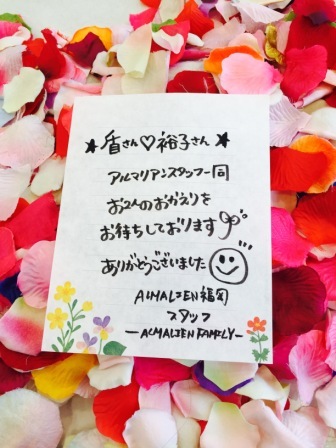 ★盾さん♡裕子さん★
アルマリアンスタッフ一同
お2人のおかえりを
お待ちしております
ありがとうございました
ALMALIEN福岡
スタッフ
―ALMALIEN FAMILY―